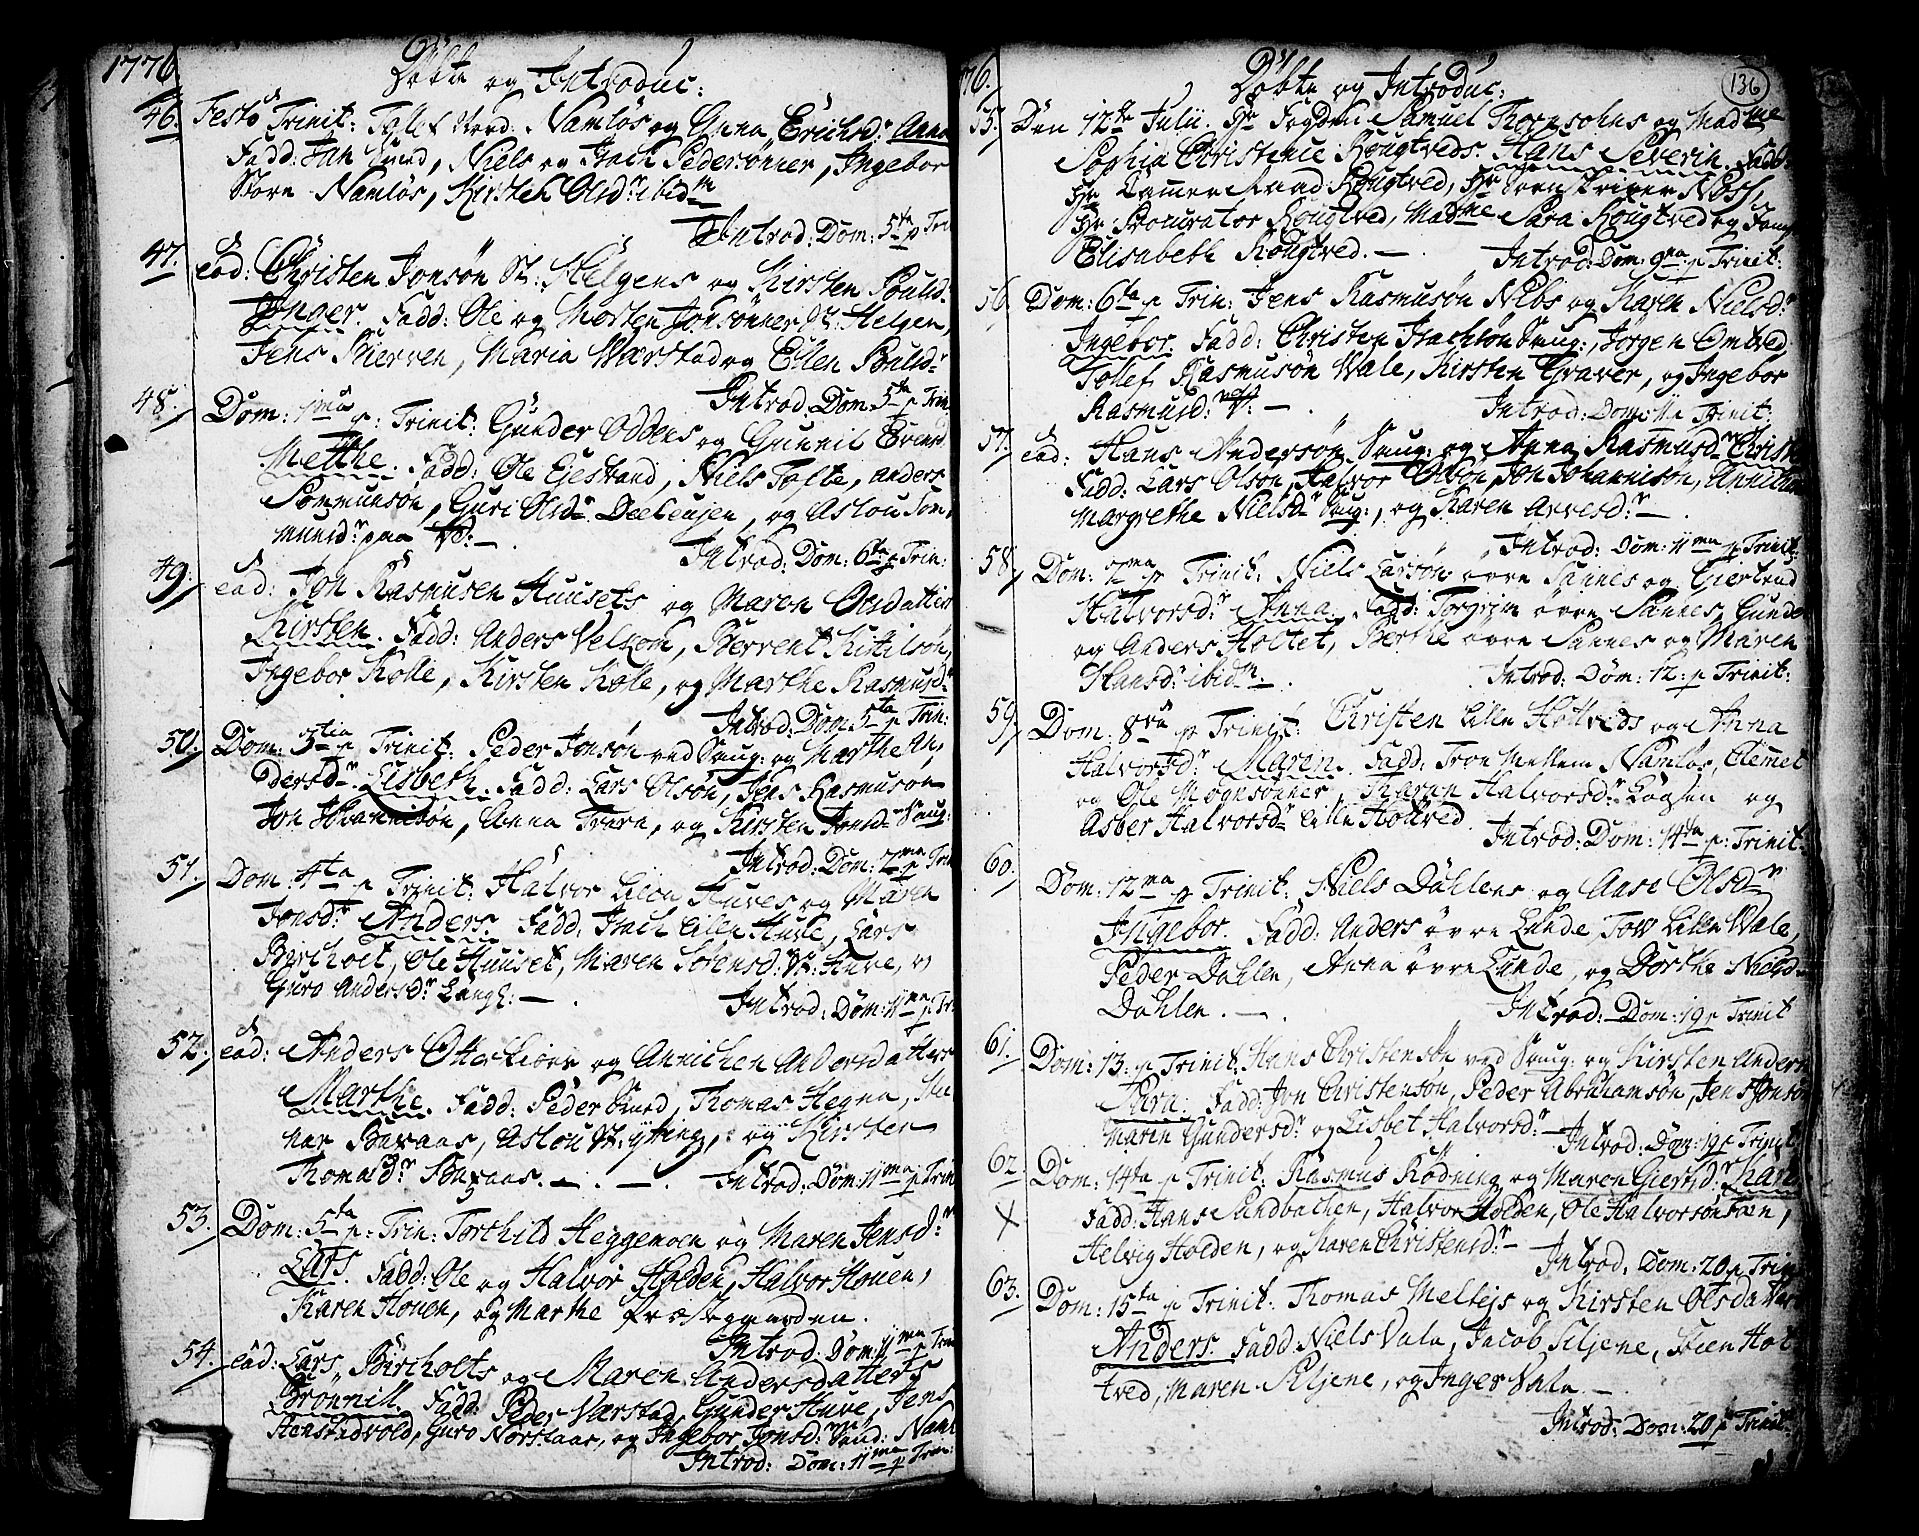 1776
Döbte og Introduc:
46. Festo Trinit: Tollef Nord: Namløs og Anna Erichsd:r Anna
Fadd: Jan Lund, Niels og Isach Pedersønner, Ingebor
Store Namløs, Kirsten Olsd:r ibid:m
Introd: Dom: 5ta p Trin
47. eod: Christen Jonsøn St: Helgens og Kirsten Pouls-
Inger. Fadd: Ole og Morten Jonsønner St: Helgen,
Jens Bierven, Maria Værstad og Ellen Pouls-
Introd: Dom: 5ta p Trin
48. Dom: 1ma p: Trinit: Gunder Oddens og Gunnil Evensd
Methe. Fadd: Ole Ejestrand, Niels Tofte, Anders
Sommunsøn, Guri Olsd:r, og Aslou Som
munsd:r paa
Introd: Dom: 6ta p Trin:
49. eod: Jon Rasmusen Huusets og Maren Olsdatters
Kirsten. Fadd: Anders Velkom, Berrent Kittilsøn,
Ingebor Kolle, Kirsten Kolle, og Marthe Rasmusd:r
Introd: Dom: 5ta p Trin:
50. Dom: 3tia p Trinit: Peder Jonsøn ved Saug: og Marthe An,
dersd:r Lisbeth. Fadd: Lars Olsøn, Jens Rasmusøn
Jon Johannisøn, Anna Træen, og Kirsten Jonsd:r Saug:
Introd: Dom: 12ma p Trin
51. Dom: 4ta p Trinit: Halvor Lilen Huves og Maren
Jonsd:r Anders. Fadd: Isach Lillen Huve, Lars
Bircholt, Ole Huuset, Maren Sørensd: St: Huve, og
Guro Andersd:r Langl: —
Introd: Dom: 11ma p: Tr
52. eod: Anders Otterkiørs og Annichen Andersdatters
Marthe. Fadd: Peder Lund, Thomas Hegna,
nar Baxaas, Aslou, og Kirsten
Thomasd:r Baxaas. —. —. Introd: Dom: 11ma p Trin
53. Dom: 5ta p: Trin: Torchild Heggemoen og Maren Jensd:r
Lars. Fadd: Ole og Halvor Holden, Halvor Houen,
Karen Houen, og Marthe Præstegaarden.
Introd: Dom: 11ma Trin
54. eod: Lars Bircholts og Maren Andersdatters
Bronnill. Fadd: Peder Værstad, Gunder Huve, Jens
Henstadvold, Guro Norslaae, og Ingebor Jonsd: Nam
Introd: Dom: 11ma p Trin:
76. Döbte og Introduc: 136
55. Den 12te Julii. Hr Fogden Samuel Thornsohns og Madme
Sophia Christence Rougtveds. Hans Severin. Fadd:
Hr Cammer Raad Rougtved, Hr Sorenskriver Ness,
Hr Procurator Rougtved, Madme Sara Rougtved og Jomf
Elisabeth Rougtved. — Introd: Dom: 9na p Trinit:
56 Dom: 6ta p Trin: Jens Rasmusøn Nebs og Karen Nielsd:r
Ingebor. Fadd: Christen Isachsøn Saug:, Jørgen Omtved,
Tollef Rasmusøn Vale, Kirsten Graver, og Ingebor
Rasmusd:r — Introd: Dom: 11 p Trinit:
57. eod: Hans Andersøn Saug: og Anna Rasmusd:r Christ
Fadd: Lars Olsøn, Halvor Olsøn, Jon Johannisøn,
Margrethe Nielsd:r Saug:, og Karen Arvesd:r —
Introd: Dom: 11ma p Trinit:
58, Dom: 7ma p Trinit: Niels Larsøn øvre Sannes og Giertrud
Halvorsd:r Anna. Fadd: Torgrim øvre Sannes, Gunder
og Anders Holtet, Berthe øvre Sannes og Maren
Hansd:r ibid:m Introd: Dom: 12: p Trinit:
59, Dom: 8va p Trinit: Christen Lille Holtveds og Anna
Halvorsd:r Maren. Fadd: Tron Mellem Namløs, Clemet
og Ole Mognsønner, Karen Halvorsd:r og
Asber Halvorsd:r Lille Holtved
Introd: Dom: 14ta p: Trinit:
60. Dom: 12ma p Trinit: Niels Dahlens og Aase Olsd:r
Ingebor. Fadd: Anders øvre Lunde, Tov Lille Vale,
Peder Dahlen, Anna øvre Lunde, og Dorthe Nielsd:
Dahlen. —. Introd: Dom: 19 p Trinit
61. Dom: 13: p Trinit: Hans Christensøn ved Saug: og Kirsten Anders
Sara. Fadd: Jon Christensøn, Peder Abrahamsøn, Jens Jonsøn
Maren Gundersd:r og Lisbet Halvorsd:r —
Introd: Dom: 19 p Trinit
62. Dom: 14ta p Trinit: Rasmus Rødning og Maren Giertsd:r Karen
X Fadd: Hans Sandbachen, Halvor Holden, Ole Halvorsøn,
Helvig Holden, og Karen Christensd:r —
Introd: Dom: 20 p Trin
63. Dom: 15ta p Trinit: Thomas Meltejs og Kirsten Olsdatters
Anders. Fadd: Niels Vala, Jacob Siljene, Sven Hol
tved, Maren Siljene, og Inger Vala —
Introd: Dom: 20 p Trinit: